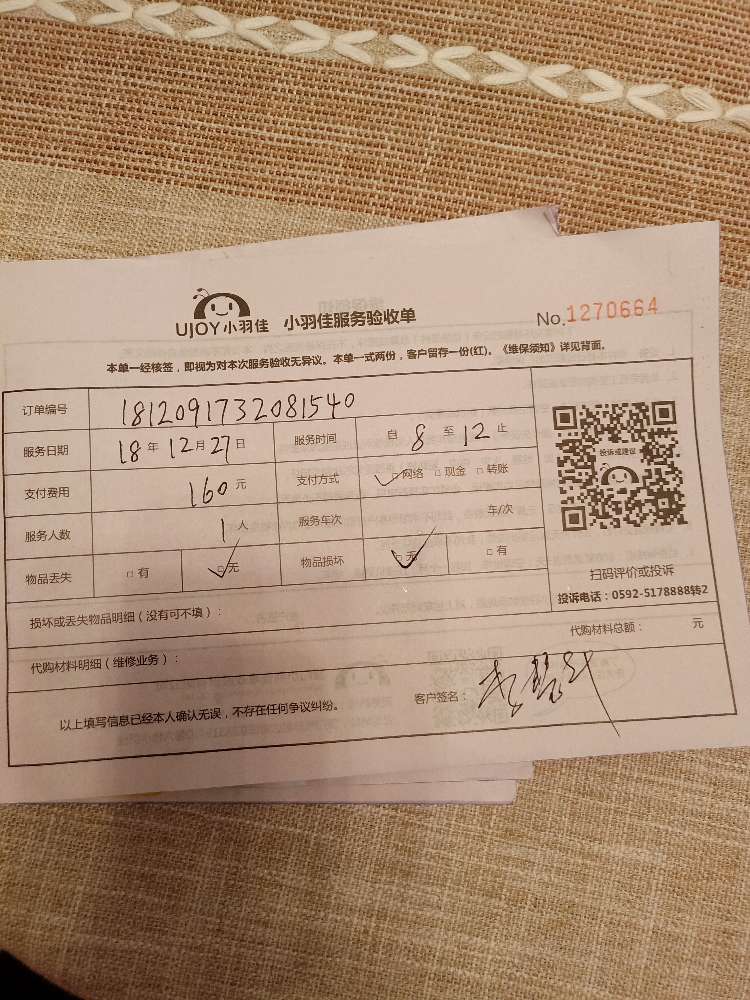 UJOY小羽佳 小羽佳服务验收单 No.1270664
本单一经核签，即视为对本次服务验收无异议。本单一式两份，客户留存一份(红)。《维保须知》详见背面。
订单编号 1812091732081540
服务日期 18年12月27日 服务时间 自8至12止
支付费用 160元 支付方式 ✓□网络 □现金 □转账
服务人数 1人 服务车次 车/次
物品丢失 □有 ✓□无 物品损坏 ✓□无 □有
投诉或建议
扫码评价或投诉
投诉电话：0592-5178888转2
损坏或丢失物品明细（没有可不填）：
代购材料明细（维修业务）： 代购材料总额： 元
以上填写信息已经本人确认无误，不存在任何争议纠纷。 客户签名：